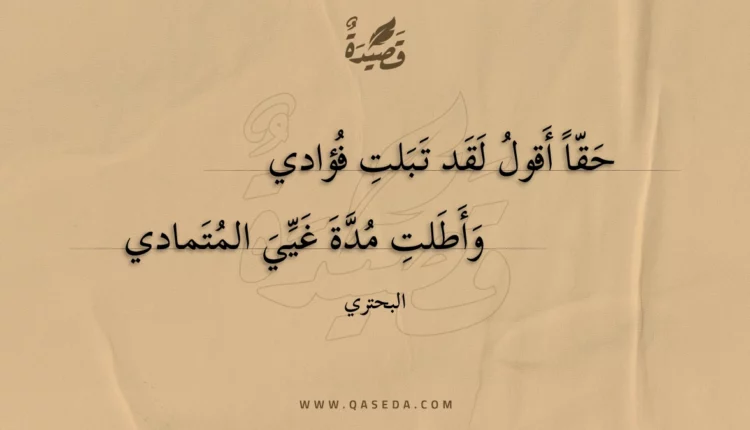 قَصِيْدَةٌ
حَقّاً أَقولُ لَقَد تَبَلتِ فُؤادي
وَأَطَلتِ مُدَّةَ غَيِّيَ المُتَمادي
البحتري
WWW.QASEDA.COM